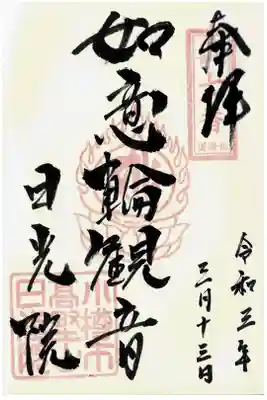 奉拝
令和三年
三月十三日
如意輪観音
日光院